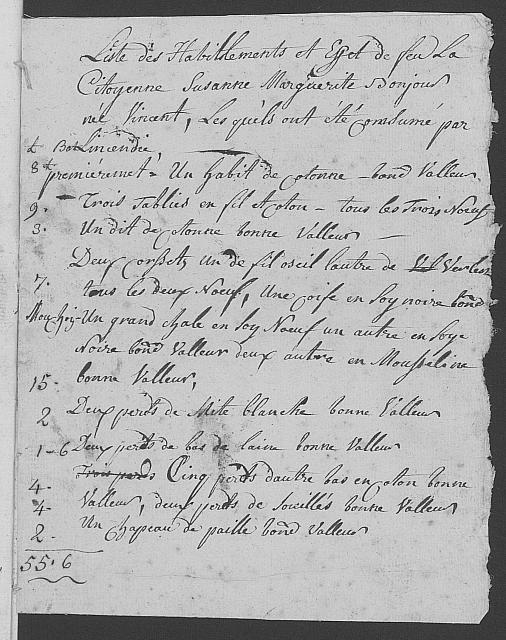 Liste des Habillements et Effet de feu La
Citoyenne Susanne Marguerite Bonjour
née Vincent, Les quels ont été Consumé par
L'incendie
8 premiérement = Un habit de Cotonne - bonne Valleur
9. Trois Tabliés en fil et Coton - tous les Trois Neuf
3. Un dit de Cotonne bonne Valleur —
Deux Corsset, un de fil oseil lautre de
7. tous les deux Neuf, Une Coife en Soy noire bonne
Un grand chale en Soy Neuf un autre en Soye
Noire bonne Valleur deux autre en Mousseline
15. bonne Valleur,
2 Deux peres de Mite blanche bonne Valleur
1-6 Deux peres de bas de laine bonne Valleur
4. Trois peres Cinq peres dautre bas en Coton bonne
4. Valleur, deux peres de Souillés bonne Valleur
2. Un chapeau de paille bonne Valleur
55.6